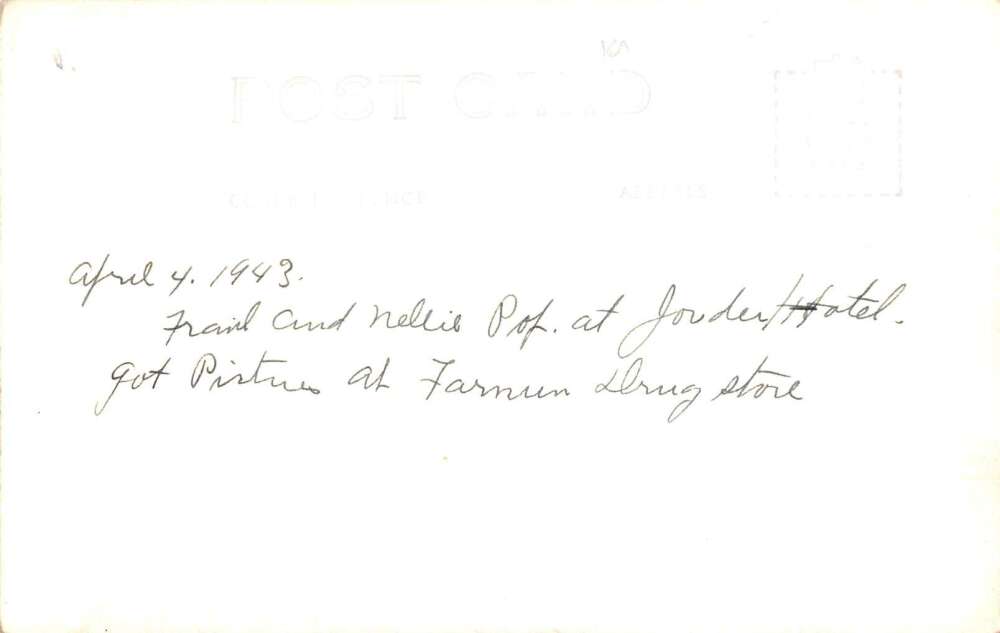 POST CARD
CORRESPONDENCE ADDRESS
april 4. 1943.
and Nellie Pop. at Hotel.
got at Drug store